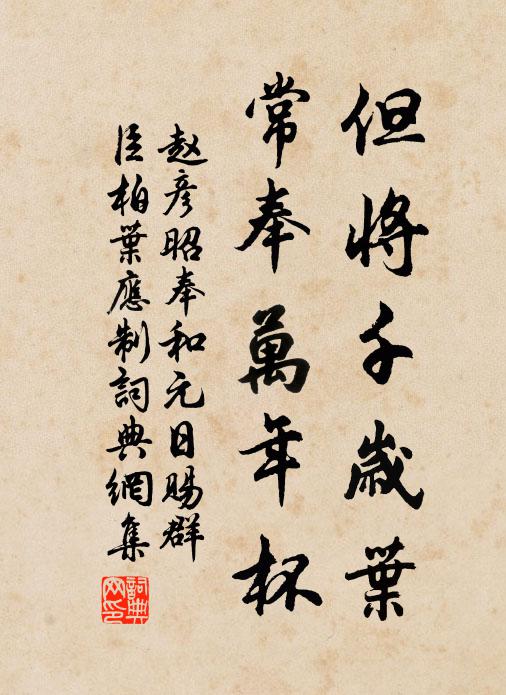 但將千歲葉
常奉萬年杯
赵彥昭奉和元日賜群
臣柏葉應制詞典網集
詞典
网印